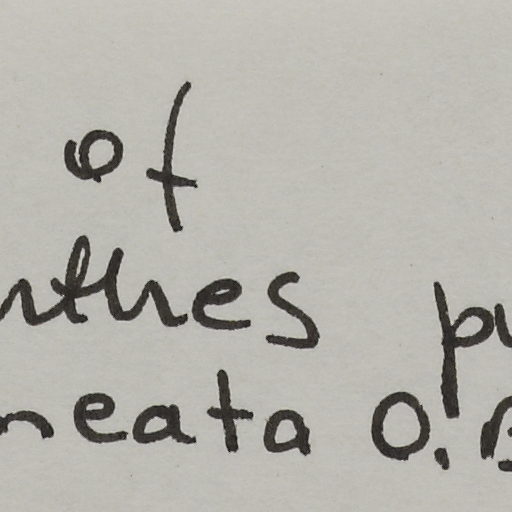 of
nthes pu
neata O.B